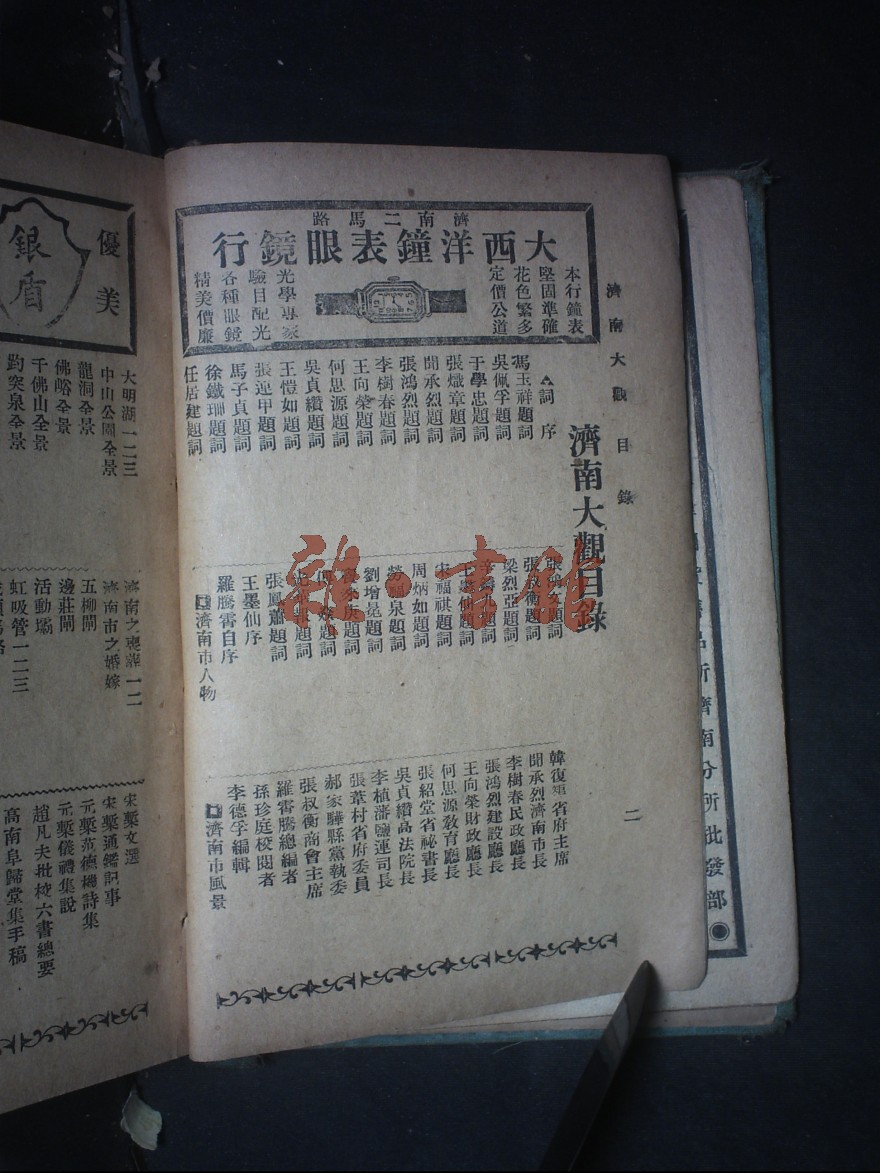 濟南大觀目錄
二
濟南二馬路
大西洋鐘表眼鏡行
本行鐘表
堅固準確
花色繁多
定價公道
光學專家
驗目配光
各種眼鏡
精美價廉
濟南大觀目錄
△詞序
馮玉祥題詞
吳佩孚題詞
于學忠題詞
張熾章題詞
聞承烈題詞
張鴻烈題詞
李樹春題詞
王向榮題詞
何思源題詞
吳貞纘題詞
王愷如題詞
張迎甲題詞
馬子貞題詞
徐鐵珊題詞
任居建題詞
題詞
張叔衡題詞
梁烈亞題詞
題詞
仙題詞
宋福祺題詞
周炳如題詞
勞福泉題詞
劉增晃題詞
題詞
題詞
題詞
張鳳蕭題詞
王墨仙序
羅騰霄自序
濟南市人物
韓復榘省府主席
聞承烈濟南市長
李樹春民政廳長
張鴻烈建設廳長
王向榮財政廳長
何思源教育廳長
張紹堂省祕書長
吳貞纘高法院長
李植藩鹽運司長
張葦村省府委員
郝家驊縣黨執委
張叔衡商會主席
羅霄騰總編者
孫珍庭校閱者
李德孚編輯
濟南市風景
優美
銀盾
大明湖一二三
中山公園全景
龍洞全景
佛峪全景
千佛山全景
趵突泉全景
濟南之喪葬一二
濟南市之婚嫁
五柳閘
邊莊閘
活動壩
虹吸管一二三
宋槧文選
宋槧通鑑記事
元槧范德機詩集
元槧儀禮集說
趙凡夫批校六書總要
高南阜歸堂集手稿
所濟南分所批發部